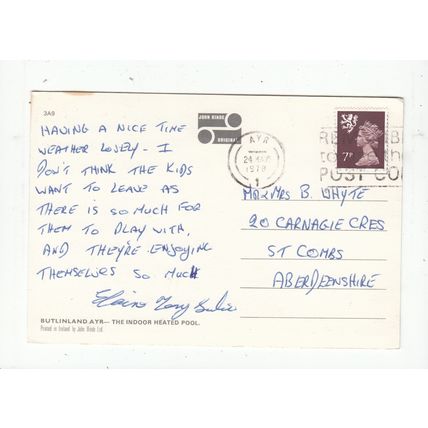 3A9
JOHN HINDE
ORIGINAL
AYR
24
1978
1
7P
POST CO
HAVING A NICE TIME
WEATHER LOVELY - I
DON'T THINK THE KIDS
WANT TO LEAVE AS
THERE IS SO MUCH FOR
THEM TO PLAY WITH,
AND THEY'RE ENJOYING
THEMSELVES SO MUCH
MR & MRS B. WHYTE
20 CARNAGIE CRES
ST COMBS
ABERDEENSHIRE
BUTLINLAND AYR— THE INDOOR HEATED POOL.
Printed in Ireland by John Hinde Ltd.